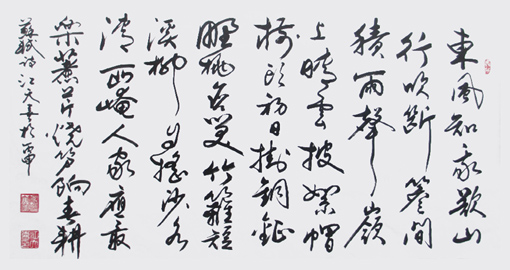 東風知我欲山
行吹斷簷間
積雨聲嶺
上晴雲披絮帽
樹頭初日掛銅鉦
野桃含笑竹籬短
溪柳自搖沙水
清西崦人家應最
樂煮芹燒笋餉春耕
蘇軾詩江天